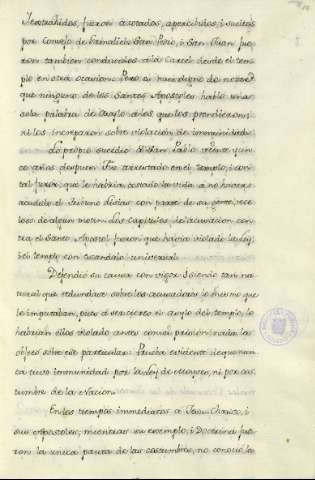 fueron azotados, apercibidos, i sueltos
por Consejo de Gamaliel: San Pedro, i San Juan fue
ron tambien conducidos a la Carcel desde el tem
plo en otra ocasion. Pero es mui digno de notarse
que ninguno de los Santos Apostoles hablo una
sola palabra de Asylo a los que los prendieron,
ni los increparon sobre violacion de immunidad.
Lo propio sucedió a San Pablo veinte i un
ce años despues. Fue arrestado en el templo, i con
tal furor, que le habria costado la vida a no haver
acudido el Tribuno Lisias con parte de su gente, rece
loso de algun motin. Los Capitulos de acusacion con
tra el Santo Apostol fueron que havia violado la Ley,
i el templo con escandalo universal.
Defendió su causa con vigor. I siendo tan na
tural que redundase sobre los acusadores lo mismo que
le imputaban, pues a ser cierto el asylo del templo, lo
habrian ellos violado antes con el prision, nada les
sobre este particular. Prueba evidente de que nun
ca tuvo immunidad por la Ley de Moyses, ni por cos
tumbre de la Nacion.
En los tiempos immediatos a Jesu Christo, i
sus Apostoles, mientras su exemplo, i Doctrina fue
ron la unica pauta de las costumbres, no conocio la